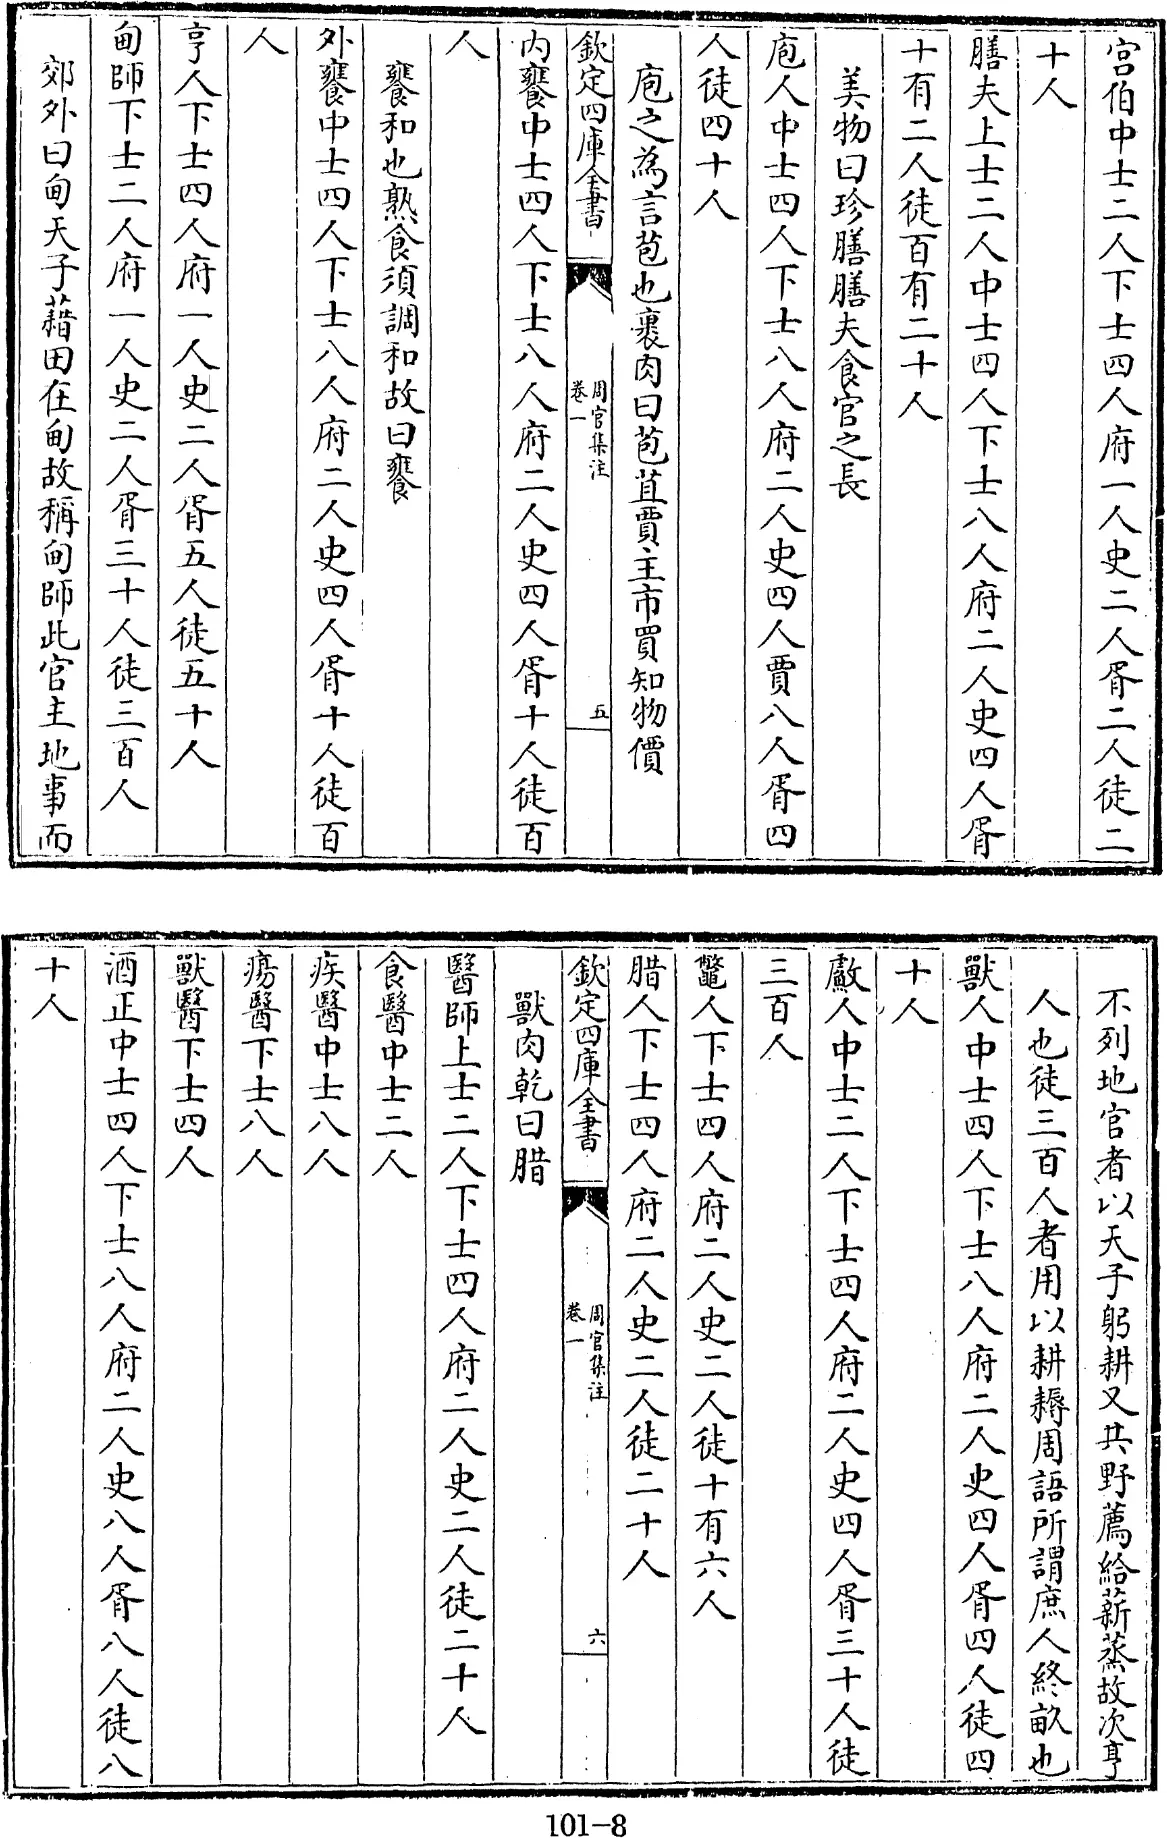 宫伯中士二人下士四人府一人史二人胥二人徒二
十人
膳夫上士二人中士四人下士八人府二人史四人胥
十有二人徒百有二十人
美物曰珍膳膳夫食官之長
庖人中士四人下士八人府二人史四人賈八人胥四
人徒四十人
庖之為言苞也裹肉曰苞苴賈主市買知物價
欽定四庫全書
周官集注
卷一
五
内饔中士四人下士八人府二人史四人胥十人徒百
人
饔和也熟食須調和故曰饔
外饔中士四人下士八人府二人史四人胥十人徒百
人
亨人下士四人府一人史二人胥五人徒五十人
甸師下士二人府一人史二人胥三十人徒三百人
郊外曰甸天子藉田在甸故稱甸師此官主地事而
不列地官者以天子躬耕又共野薦給薪蒸故次亨
人也徒三百人者用以耕耨周語所謂庶人終畝也
獸人中士四人下士八人府二人史四人胥四人徒四
十人
䱷人中士二人下士四人府二人史四人胥三十人徒
三百人
鼈人下士四人府二人史二人徒十有六人
腊人下士四人府二人史二人徒二十人
欽定四庫全書
周官集注
卷一
六
獸肉乾曰腊
醫師上士二人下士四人府二人史二人徒二十人
食醫中士二人
疾醫中士八人
瘍醫下士八人
獸醫下士四人
酒正中士四人下士八人府二人史八人胥八人徒八
十人
101-8